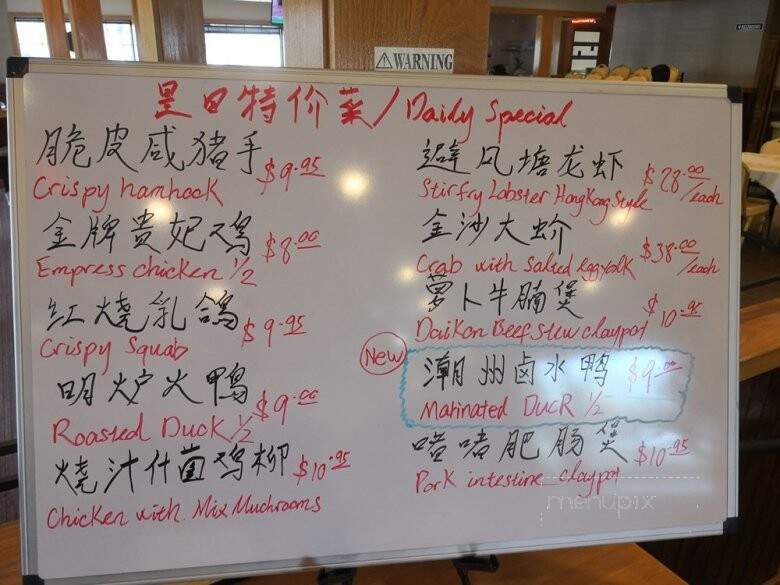 WARNING
是日特价菜/Daily Special
脆皮咸猪手 $9.95
Crispy hamhock
金牌贵妃鸡 $8.00
Empress chicken 1/2
红烧乳鸽 $9.95
Crispy Squab
明炉火鸭 $9.00
Roasted Duck 1/2
烧汁什菌鸡柳 $10.95
Chicken with Mix Muchrooms
避风塘龙虾 $28.00/each
Stirfry Lobster HongKong Style
金沙大蚧 $38.00/each
Crab with salted eggyolk
萝卜牛腩煲 $10.95
Daikon Beef stew claypot
New
潮州卤水鸭 $9.00
Marinated Duck 1/2
啫啫肥肠煲 $10.95
Pork intestine claypot
menupix